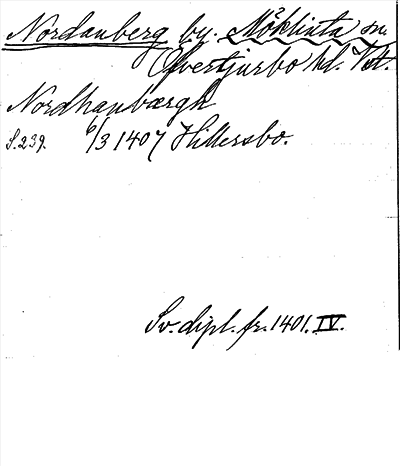 Nordanberg by. Möklinta sn.
Öfvertjurbo hd. Vstl.
Nordhanbærgh
S. 239. 6/3 1407 Hillersbo.
Sv. dipl. fr. 1401. IV.